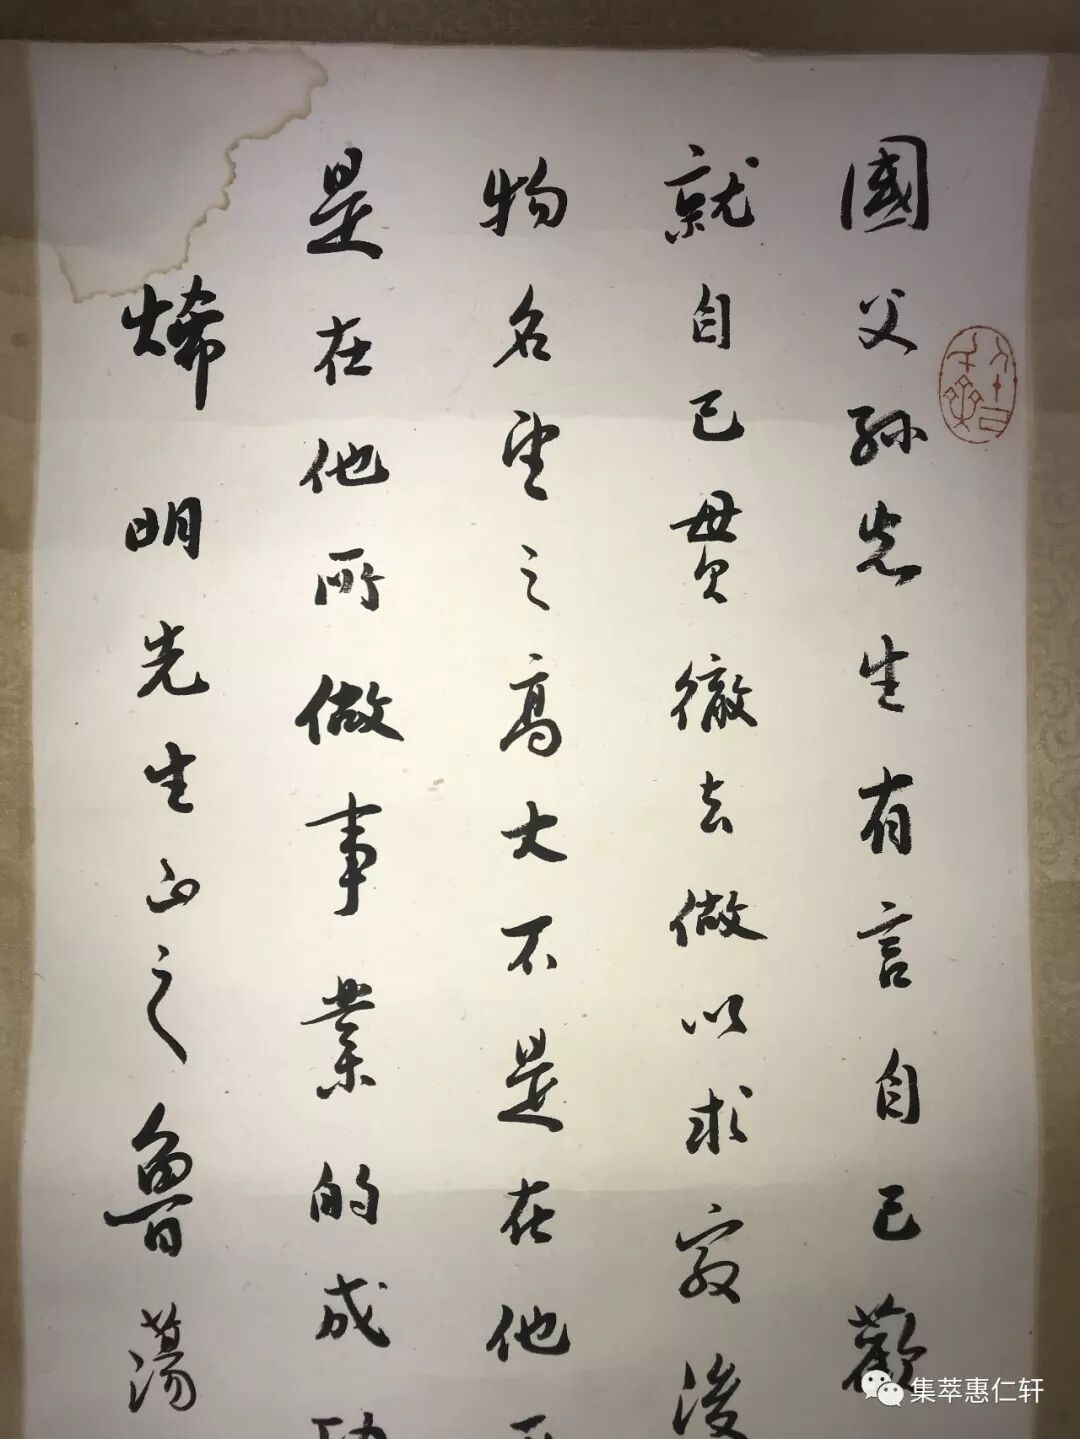 國父孫先生有言自己觀
就自己貫徹去做以求最後
物名望之高大不是在他
是在他所做事業的成功
烯明先生正之魯蕩
集萃惠仁轩